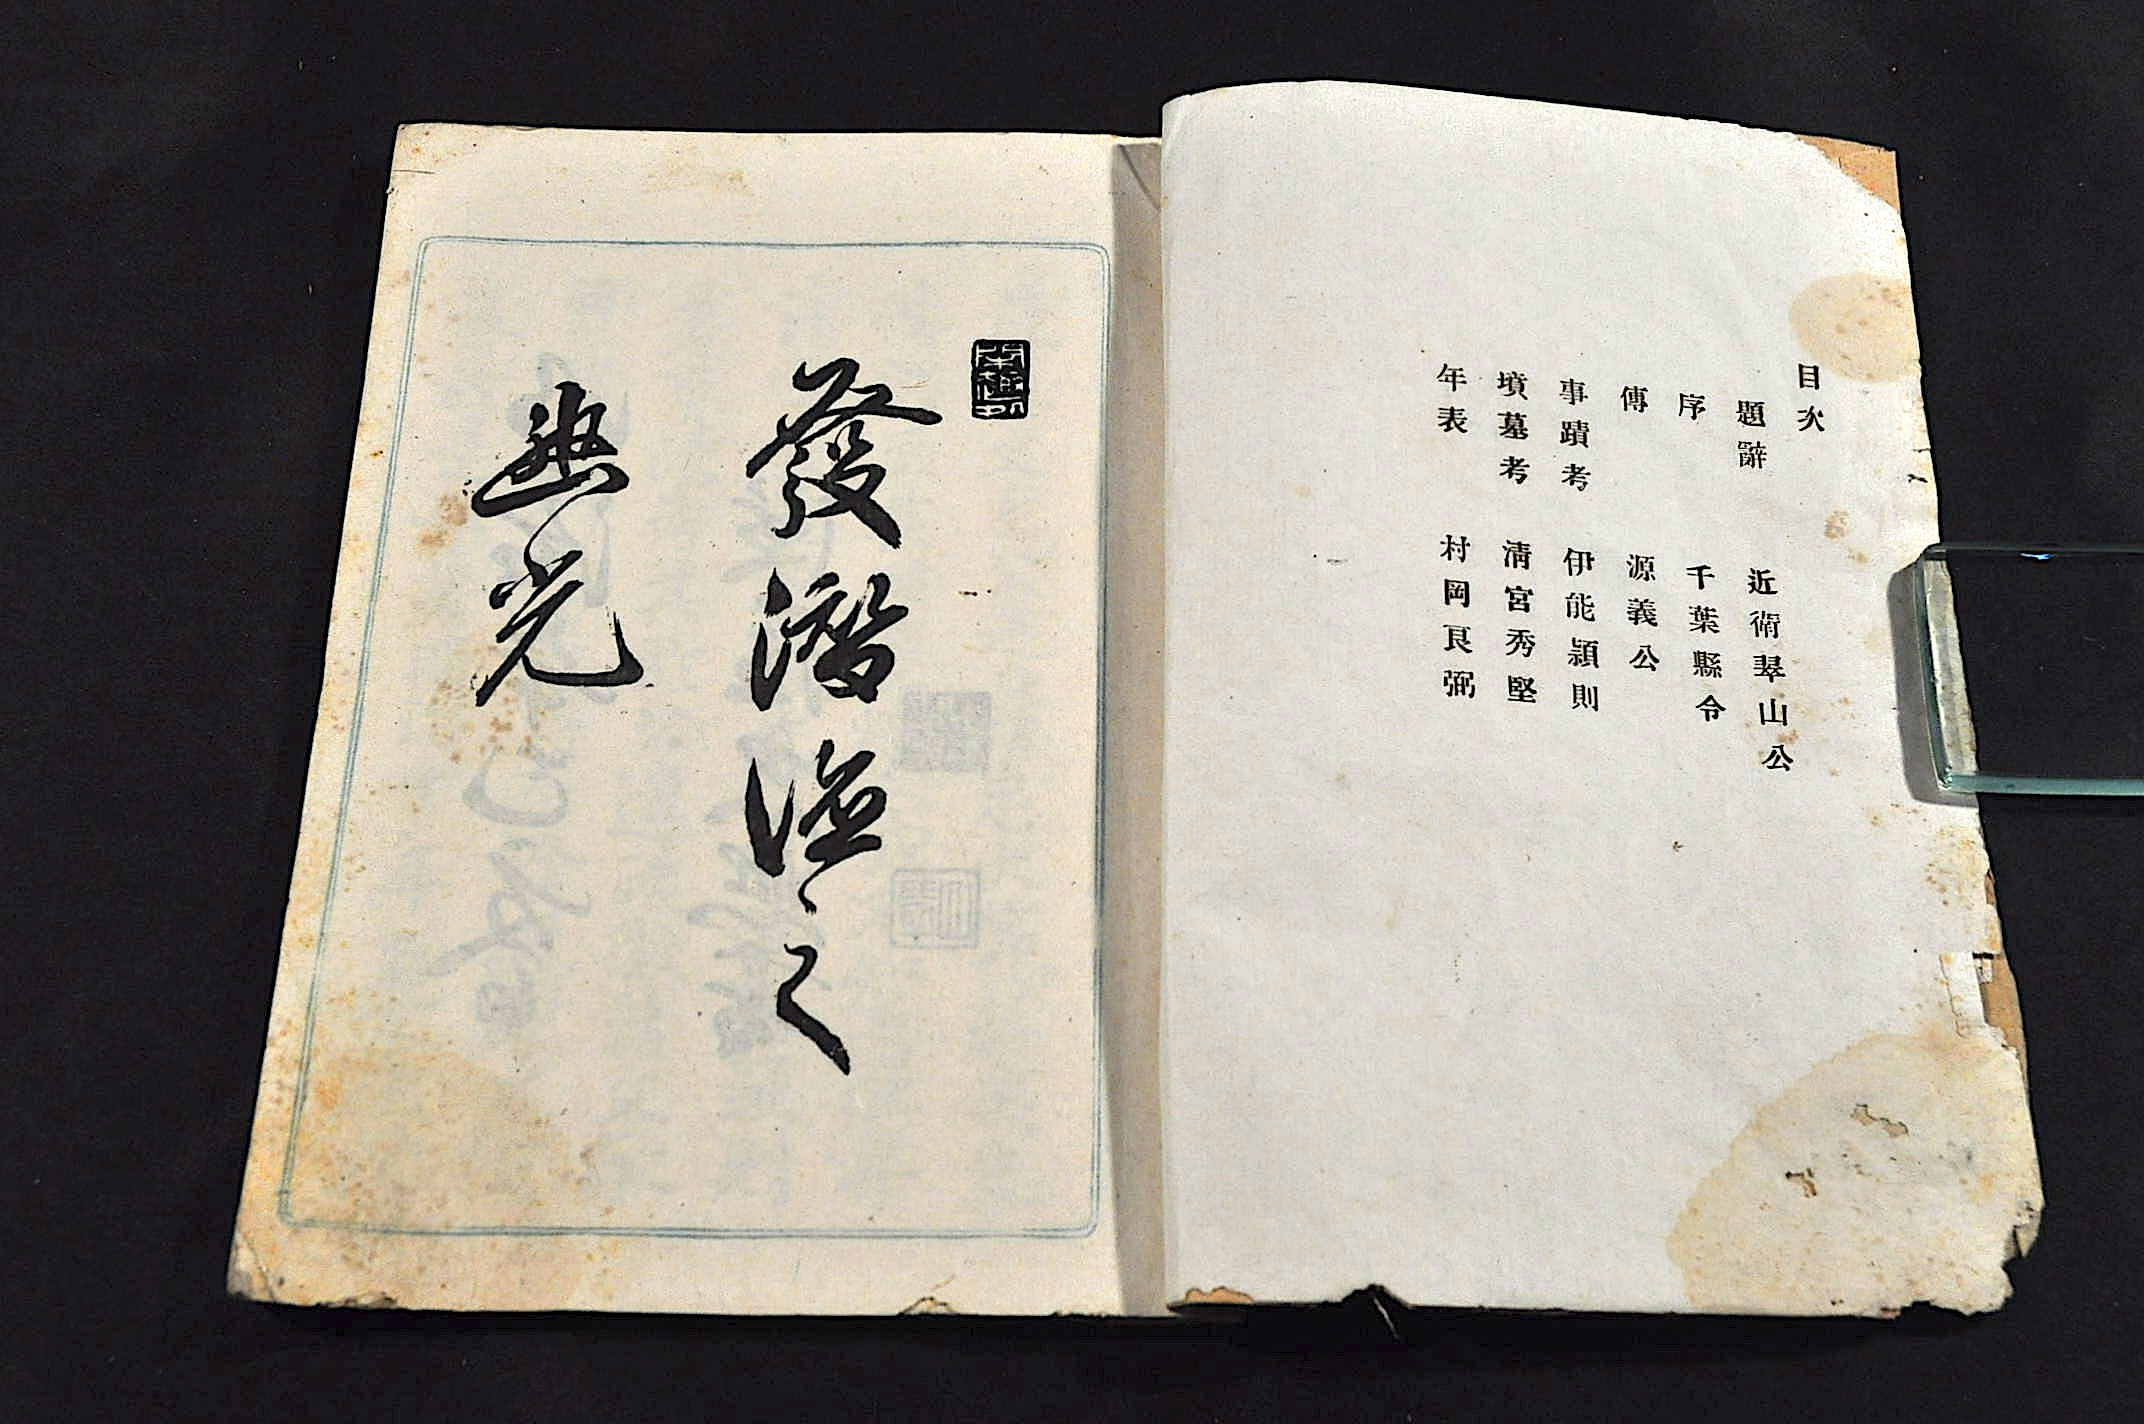 目次
題辭 近衛翠山公
序 千葉縣令
傳 源義公
事蹟考 伊能頴則
墳墓考 清宮秀堅
年表 村岡良弼
發潛德之
幽光